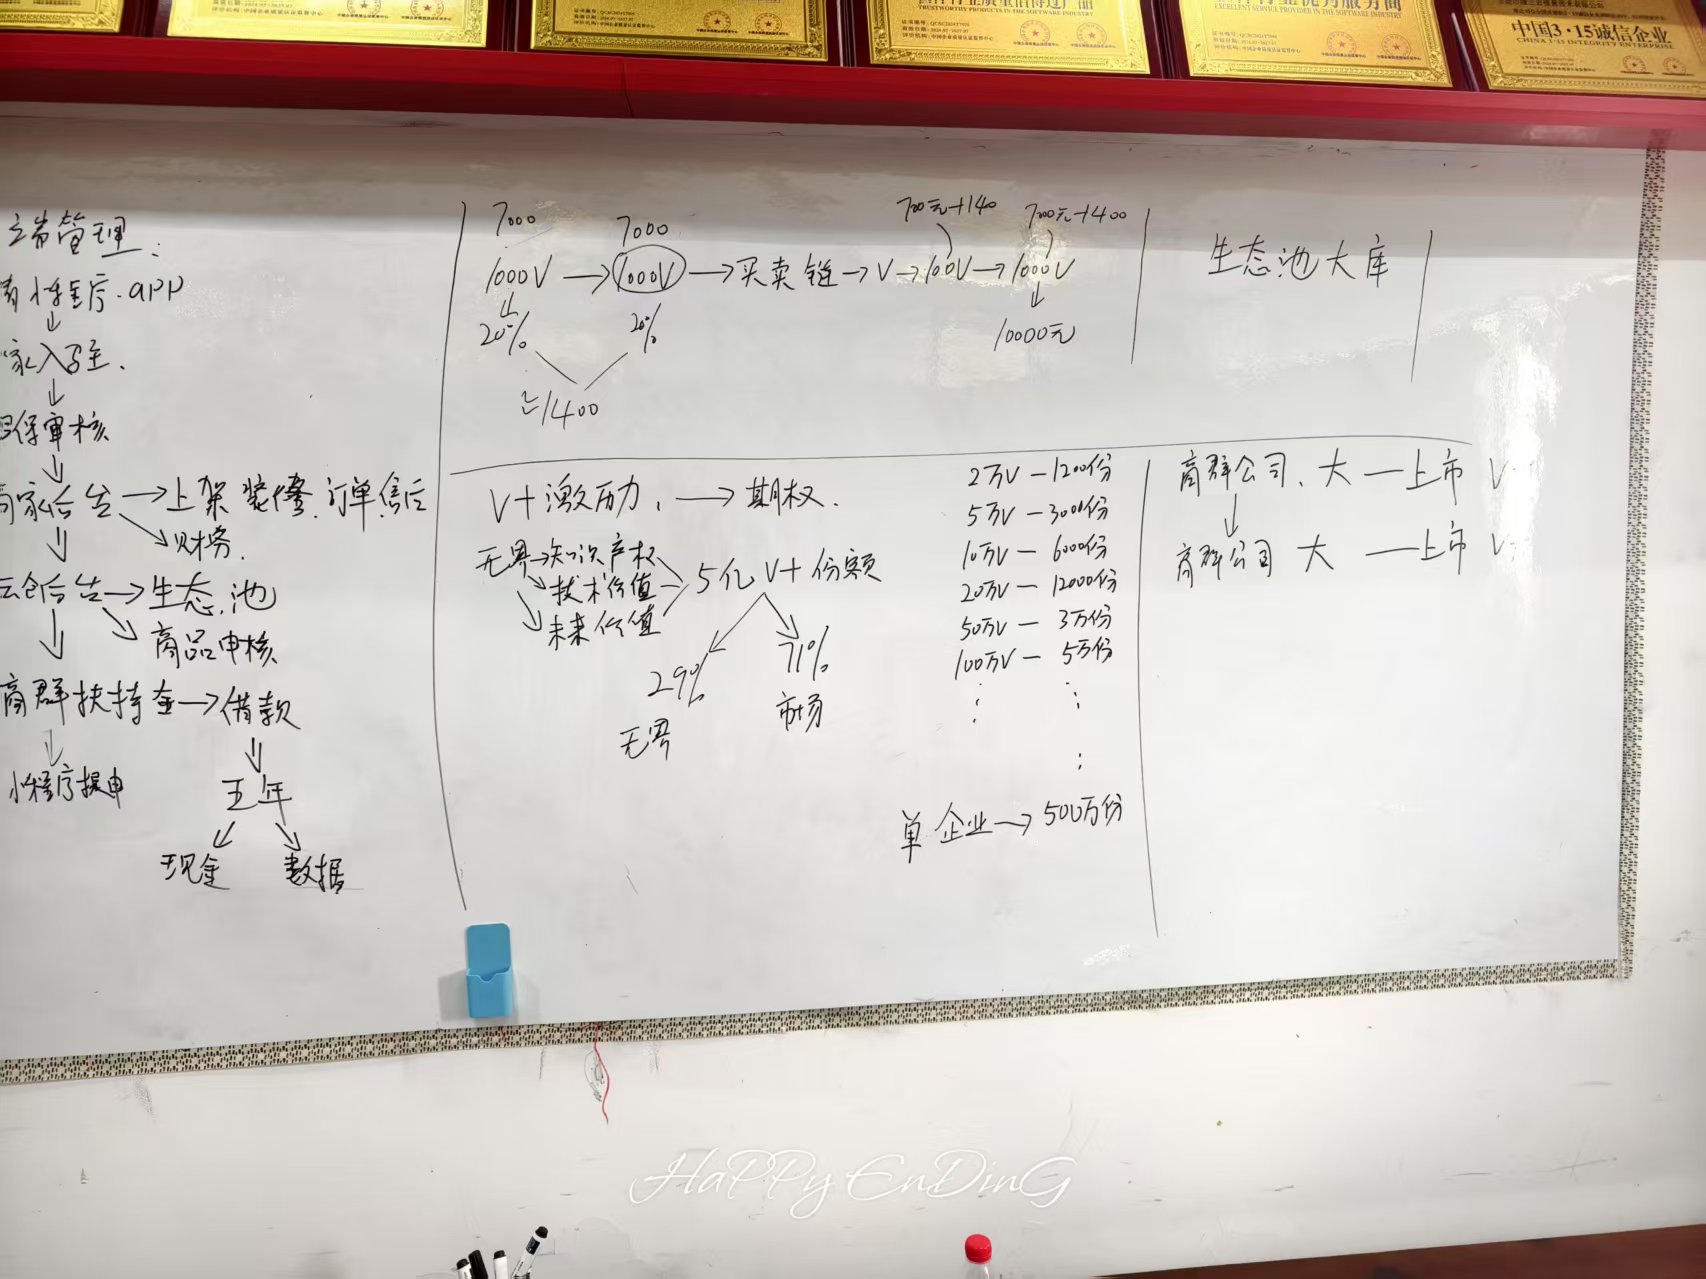 中国3·15诚信企业
CHINA 3·15 INTEGRITY ENTERPRISE
TRUSTWORTHY PRODUCTS IN THE SOFTWARE INDUSTRY
EXCELLENT SERVICE PROVIDER IN THE SOFTWARE INDUSTRY
管理:
小程序.app
↓
家入驻.
↓
保审核
↓
商家后台→上架 装修.订单.售后
财务.
云仓后台→生态.池
商品审核
商群扶持金→借款
小程序提申
五年
现金 数据
7000 7000 700元+140 700元+1400
1000V→1000V→买卖链→V→100V→1000V
20% 20% 10000元
=1400
生态池大库
V+激励,→期权.
无界→知识产权
技术价值
未来价值
5亿V+份额
29% 71%
无界 市场
2万V—1200份
5万V—3000份
10万V—6000份
20万V—12000份
50万V—3万份
100万V—5万份
单企业→500万份
商群公司、大—上市 V
商群公司 大—上市 V
HaPPy EnDinG